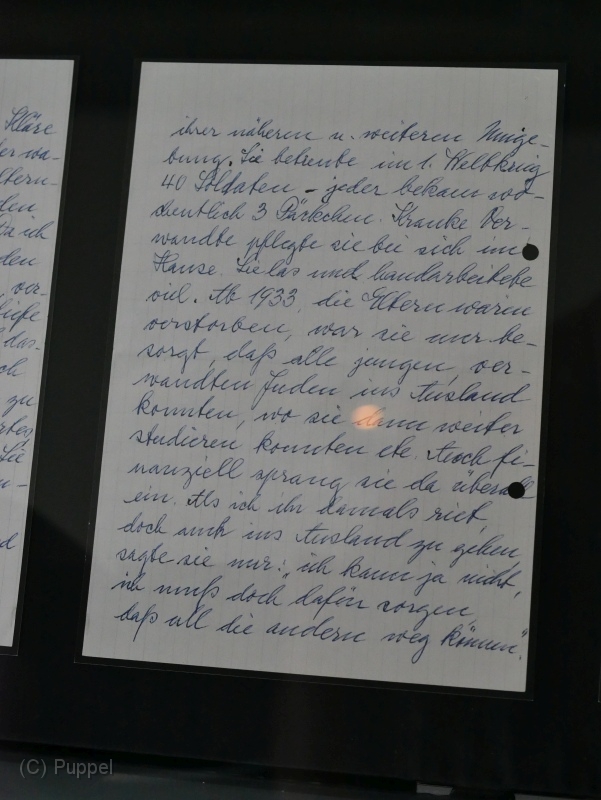 Kläre
er wa-
ltern-
den
Da ich
den
ver-
das-
ch
zu
Sie
n-
d
ihrer näheren u. weiteren Umge-
bung. Sie betreute im 1. Weltkrieg
40 Soldaten – jeder bekam wö-
chentlich 3 Päckchen. Kranke Ver-
wandte pflegte sie bei sich im
Hause. Sie las und handarbeitete
viel. Ab 1933, die Eltern waren
verstorben, war sie nur be-
sorgt, daß alle jungen, ver-
wandten Juden ins Ausland
konnten, wo sie dann weiter
studieren konnten etc. Auch fi-
nanziell sprang sie da überall
ein. Als ich ihr damals riet,
doch auch ins Ausland zu gehen
sagte sie mir: „ich kann ja nicht,
ich muß doch dafür sorgen,
daß all die andern weg können".
(C) Puppel